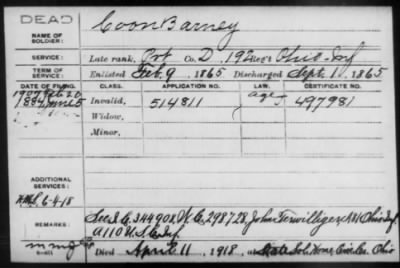 DEAD
NAME OF SOLDIER: Coon Barney
SERVICE: Late rank, Pvt Co. D, 192 Reg't Ohio Inf
TERM OF SERVICE: Enlisted Feb. 9, 1865 Discharged Sept. 1, 1865
DATE OF FILING. CLASS. APPLICATION NO. LAW. CERTIFICATE NO.
1907 Feb 20 age
1884 June 5 Invalid, 514811 497981
Widow,
Minor,
ADDITIONAL SERVICES:
6-4-18
REMARKS: See I. C. 344908, W. C. 298728, John Terwilliger, Ohio Inf
A 110 U.S.C. Inf
Died April 11, 1918, at State Sol. Home, Ohio